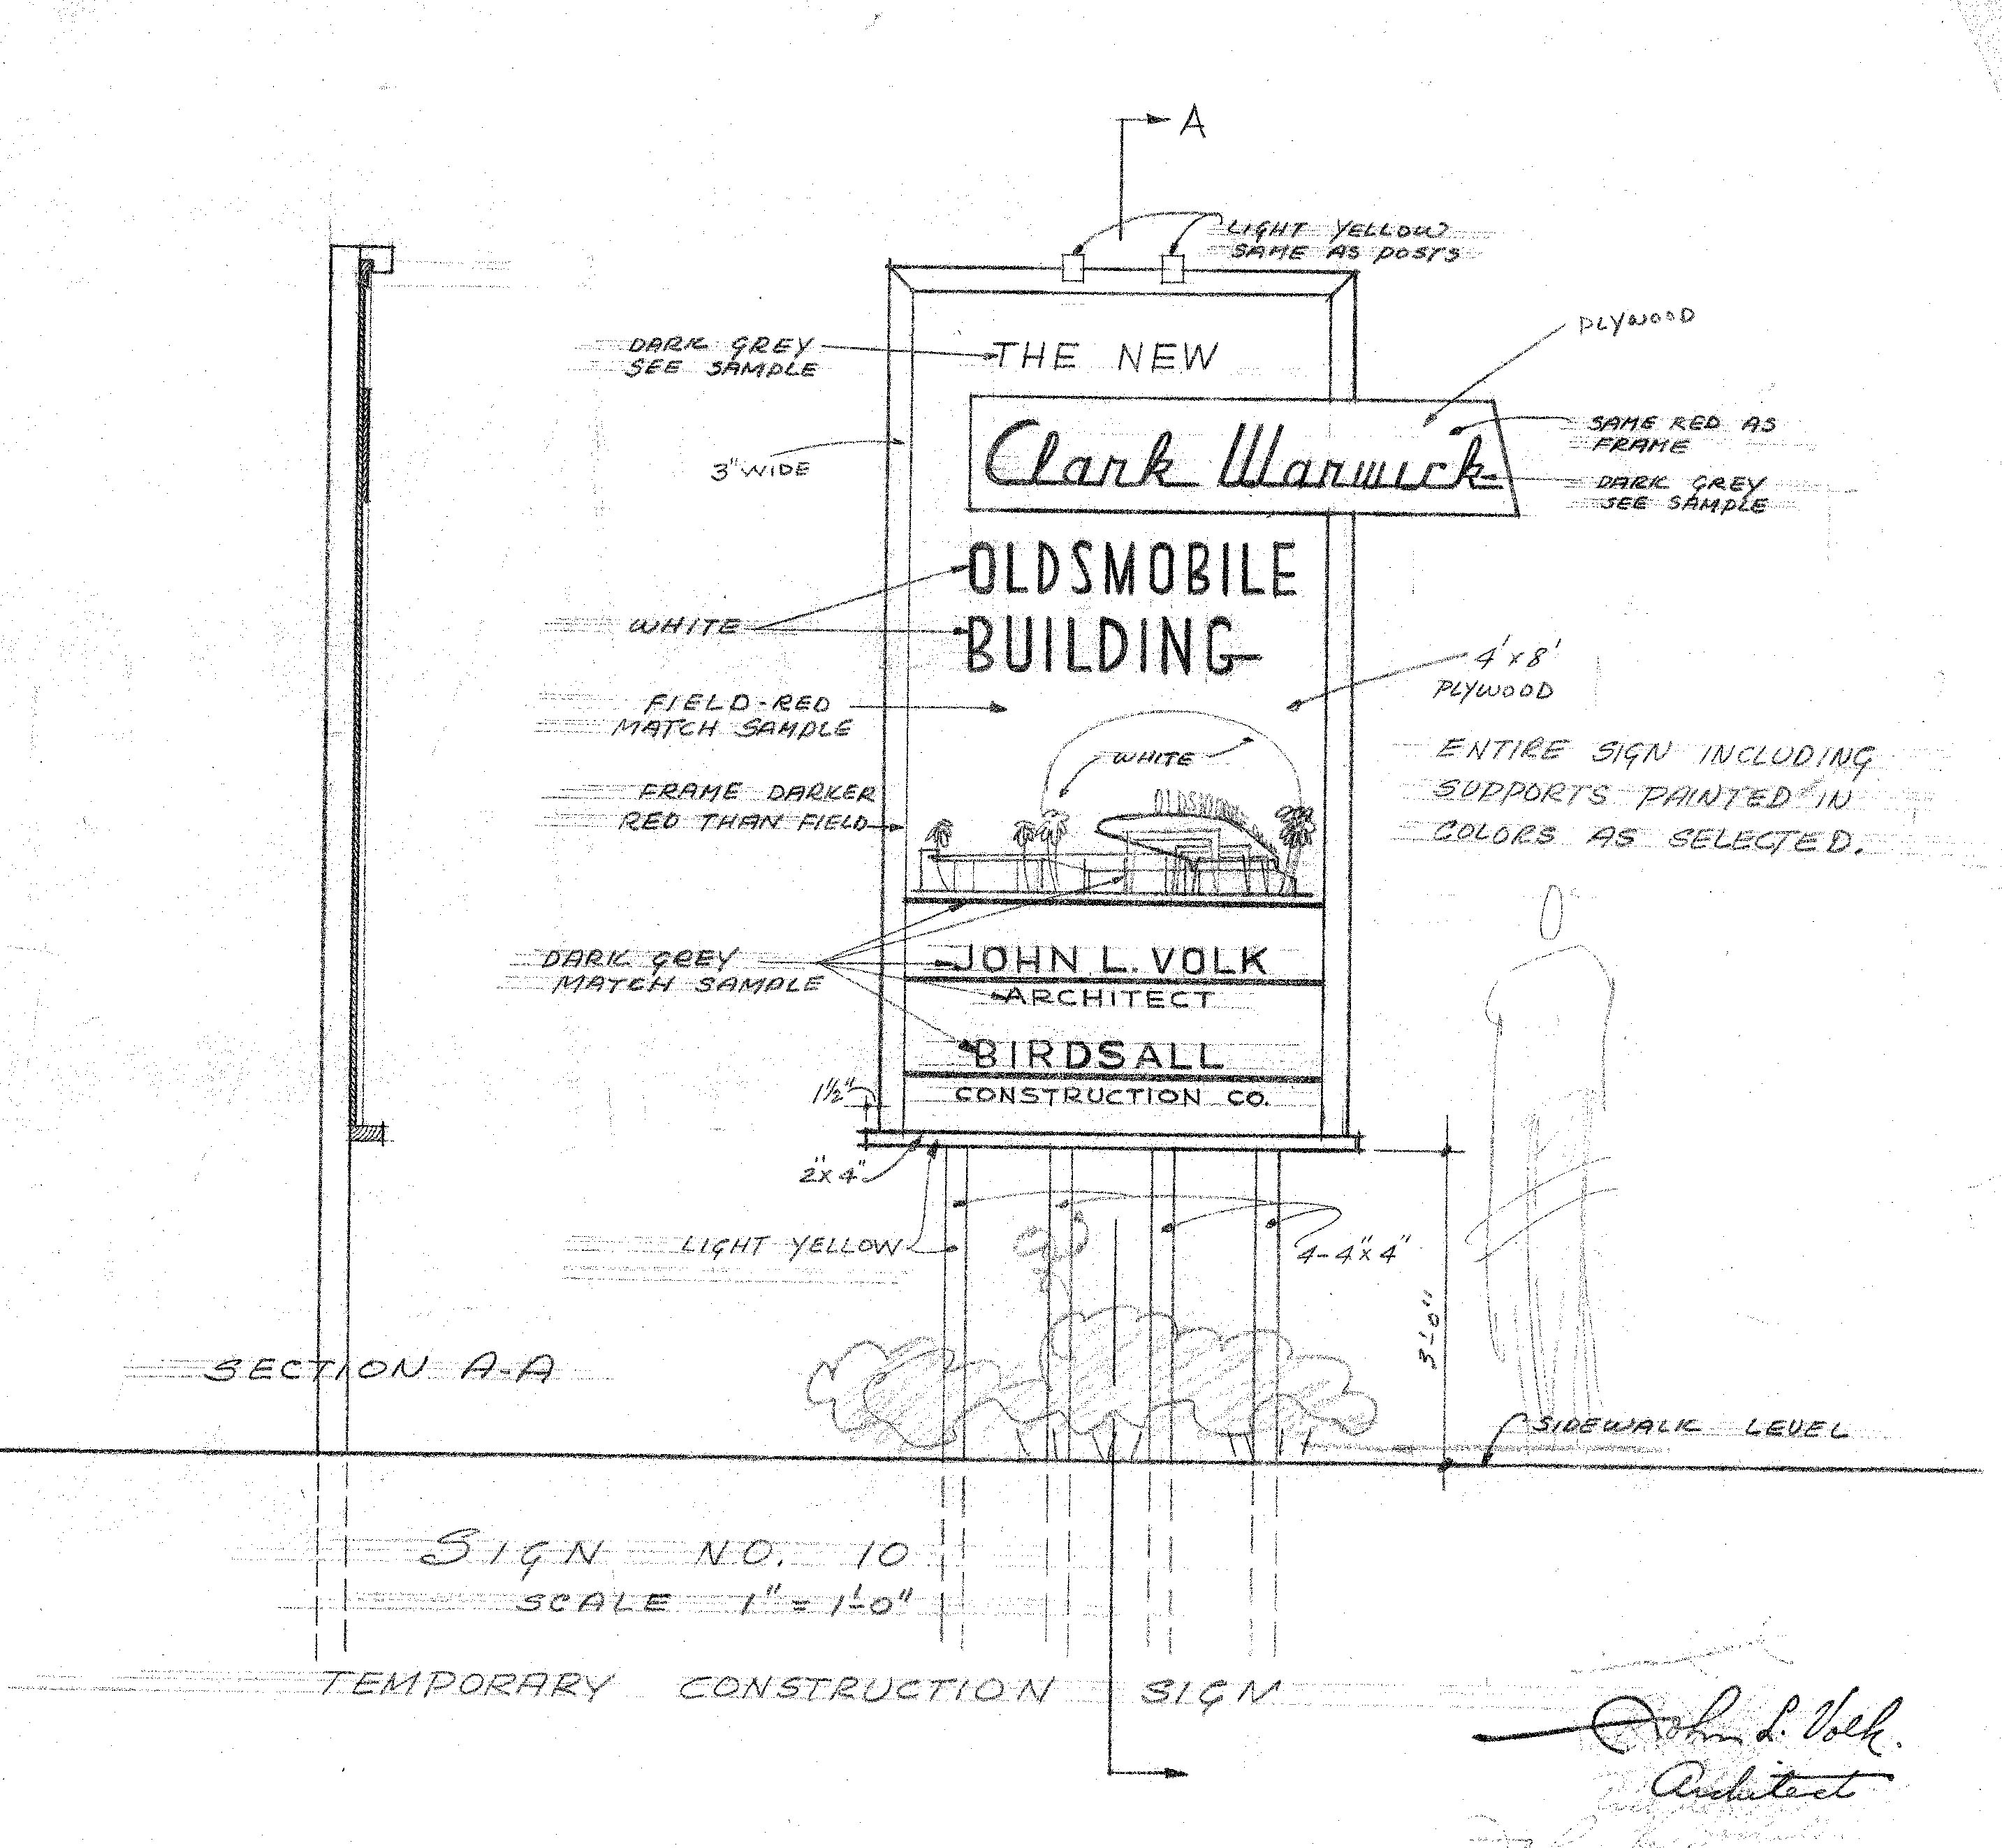 A
LIGHT YELLOW
SAME AS POSTS
PLYWOOD
DARK GREY
SEE SAMPLE
THE NEW
3" WIDE
Clark Warwick
SAME RED AS
FRAME
DARK GREY
SEE SAMPLE
OLDSMOBILE
BUILDING
WHITE
4' x 8'
PLYWOOD
FIELD-RED
MATCH SAMPLE
WHITE
ENTIRE SIGN INCLUDING
SUPPORTS PAINTED IN
COLORS AS SELECTED.
FRAME DARKER
RED THAN FIELD
OLDSMOBILE
DARK GREY
MATCH SAMPLE
JOHN L. VOLK
ARCHITECT
BIRDSALL
CONSTRUCTION CO.
1½"
2" x 4"
LIGHT YELLOW
4-4" x 4"
3'-0"
SECTION A-A
SIDEWALK LEVEL
SIGN NO. 10
SCALE 1" = 1'-0"
TEMPORARY CONSTRUCTION SIGN
John L. Volk.
Architect